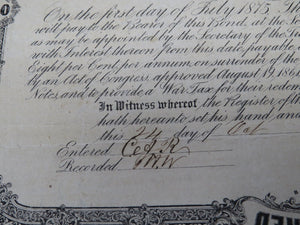 On the first day of July 1875
will pay to the Bearer of this Bond, at the
as may be appointed by the Secretary of the
with Interest thereon from this date, payable
Eight per Cent per annum on surrender of the
by an Act of Congress, approved August 19, 186
Notes, and to provide a War Tax for their redem
In Witness whereof the Register of th
hath hereunto set his hand, and
this 24 day of Oct
Entered
Recorded